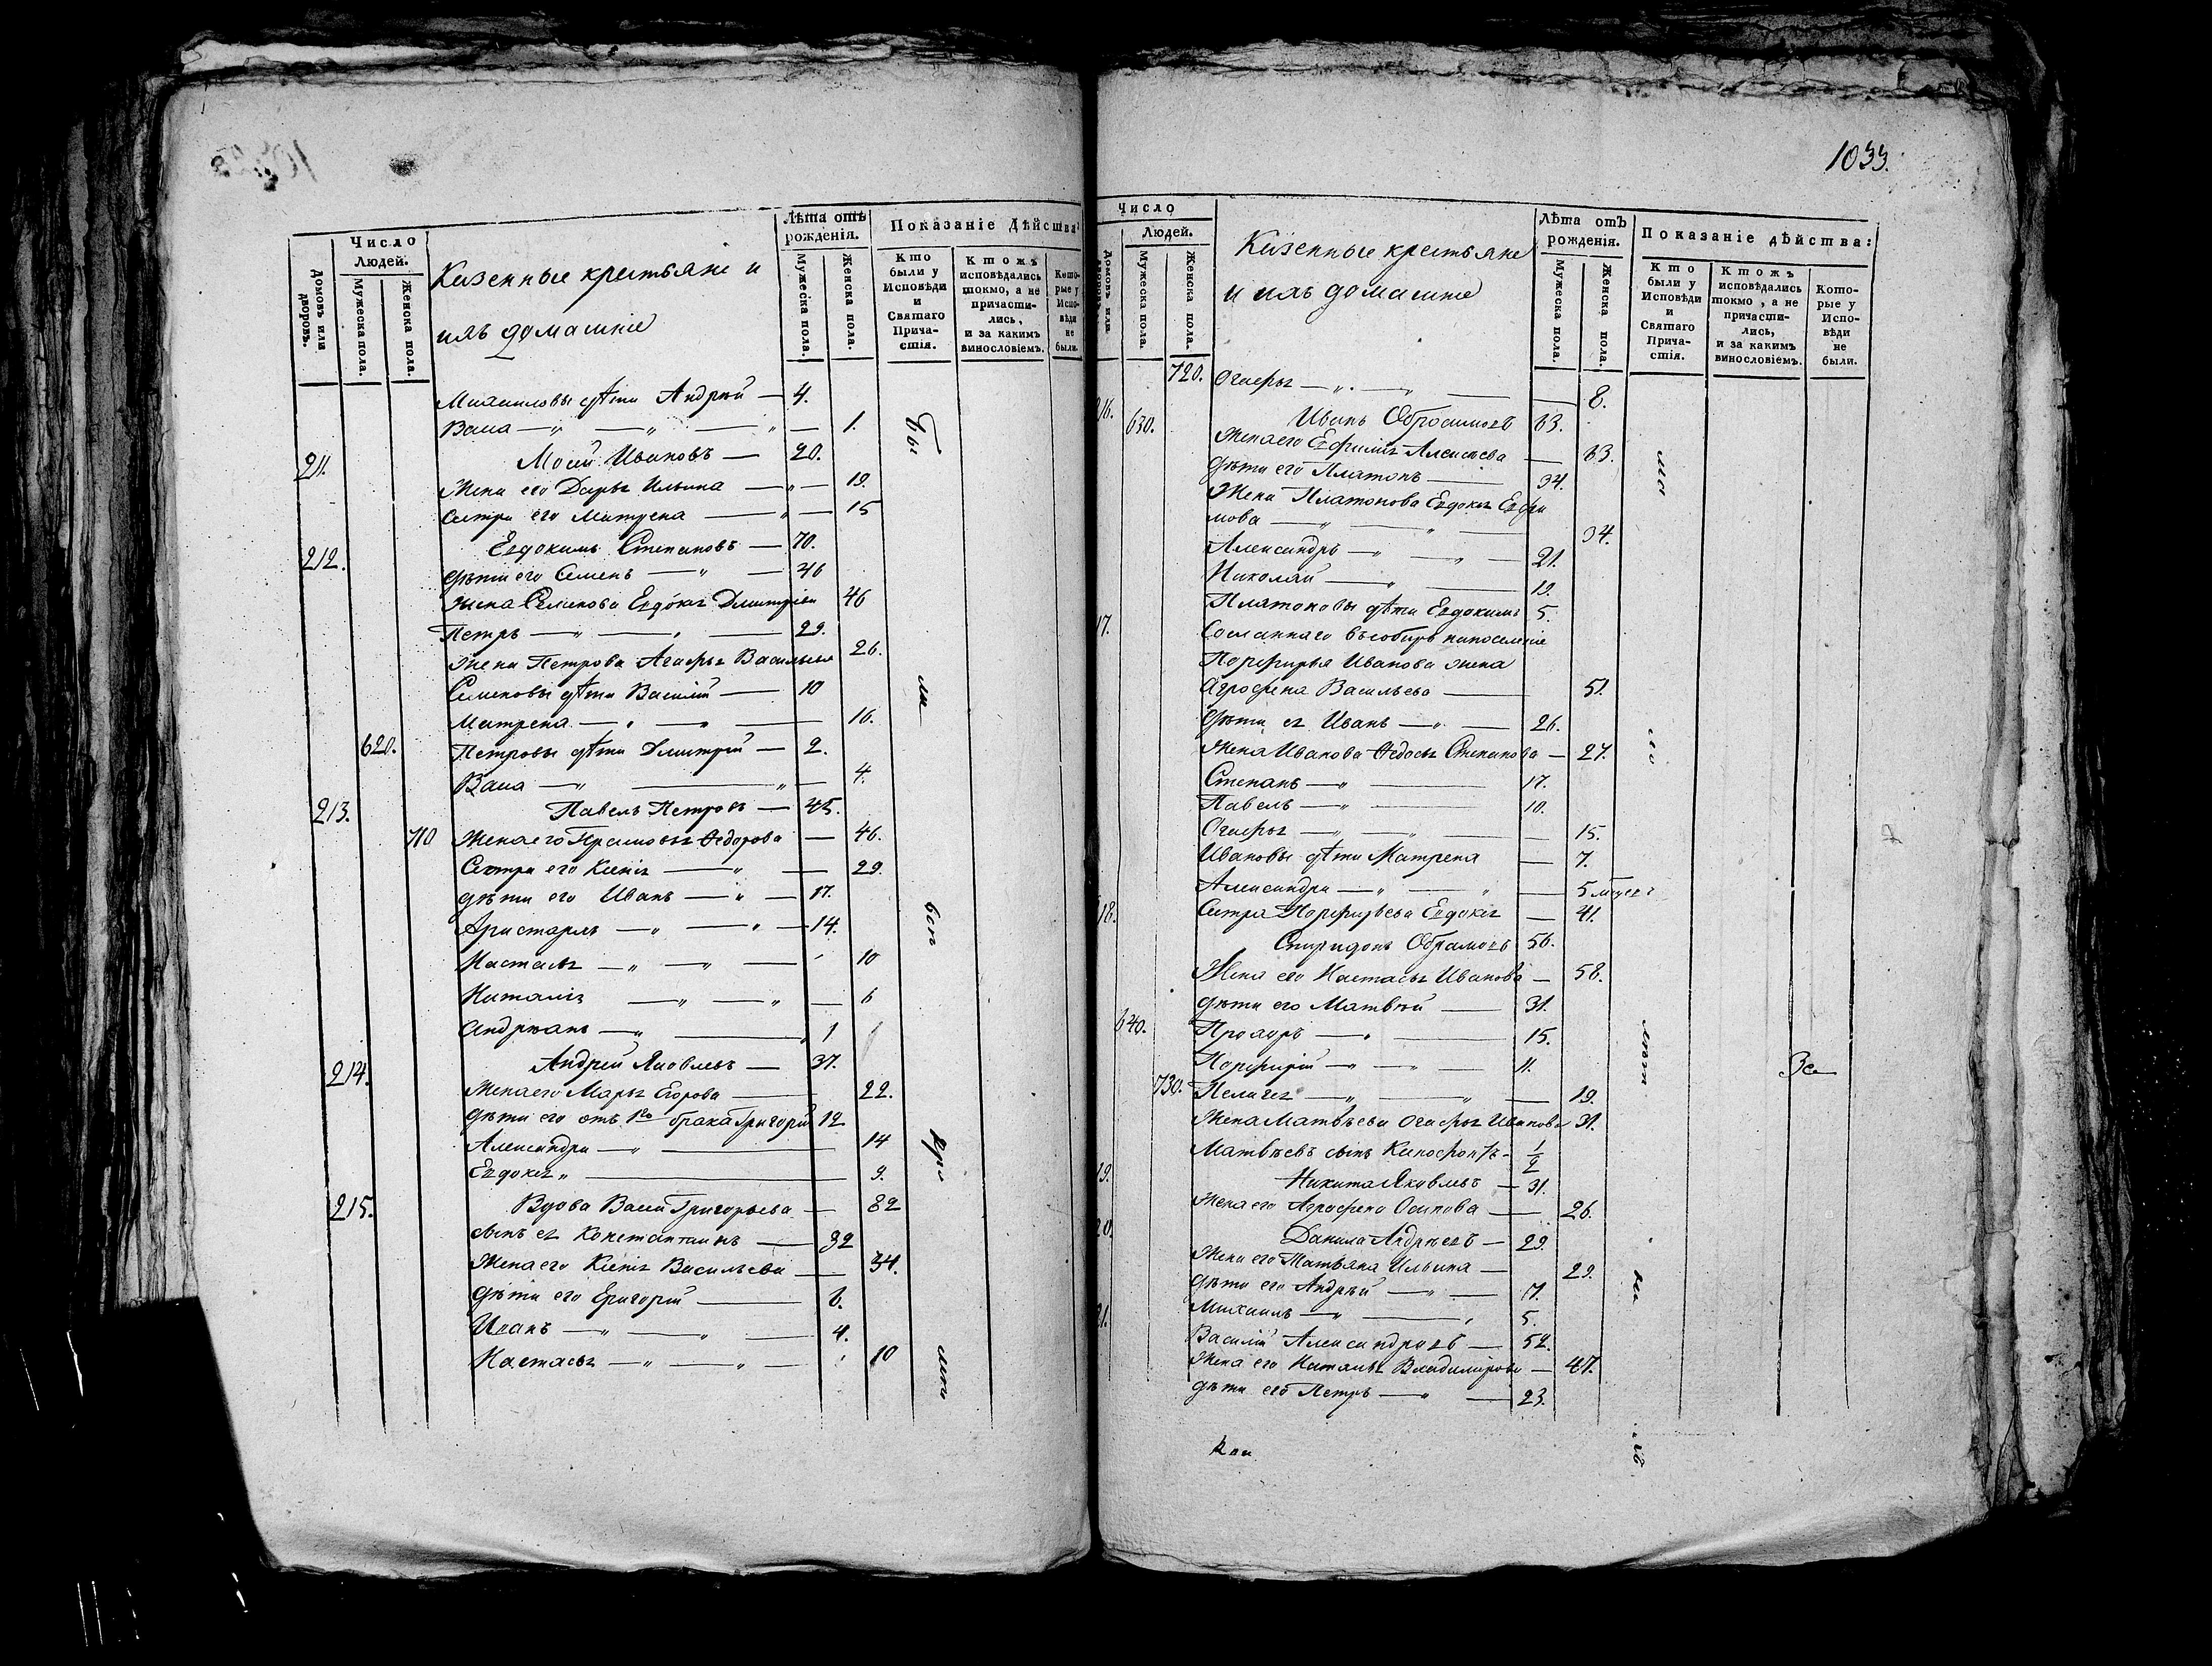 1033.
Число
Людей.
Домовъ или дворовъ.
Мужеска пола.
Женска пола.
Казенные крестьяне и
ихъ домашніе
Лѣта отъ
рожденія.
Мужеска пола.
Женска пола.
Показаніе Дѣйства:
Кто были у Исповѣди и Святаго Причастія.
Ктожъ исповѣдались токмо, а не причастились, и за какимъ винословіемъ.
Которые у Исповѣди не были.
Михаиловы дѣти Андрей — 4.
Васа — 1.
211. Мосей Ивановъ — 20.
Жена его Дарья Ильина — 19.
Сестра его Матрена — 15
212. Евдокимъ Степановъ — 70.
дѣти его Семенъ — 46
жена Семенова Евдокья Дмитріева 46
Петръ — 29.
жена Петрова Агафья Васильева 26.
Семеновы дѣти Василій — 10
Матрена — 16.
620. Петровы дѣти Дмитрій — 2.
Васа — 4.
213. Павелъ Петровъ — 45.
710 Жена его Прасковья Ѳедорова — 46.
Сестра его Ксенія — 29.
дѣти его Иванъ — 17.
Аристархъ — 14.
Настасья — 10
Наталія — 6
Андреанъ — 1
214. Андрей Яковлевъ — 37.
Жена его Марья Егорова — 22.
дѣти его отъ 1го брака Григорій 12
Александра — 14
Евдокья — 9.
215. Вдова Васа Григорьева — 82
сынъ ея Константинъ — 32
Жена его Ксенія Васильева — 34.
дѣти его Григорій — 6.
Иванъ — 4.
Настасья — 10
Число
Людей.
Домовъ или
Мужеска пола.
Женска пола.
Казенные крестьяне
и ихъ домашніе
Лѣта отъ
рожденія.
Мужеска пола.
Женска пола.
Показаніе дѣйства:
Кто были у Исповѣди и Святаго Причастія.
Ктожъ исповѣдались токмо, а не причастились, и за какимъ винословіемъ.
Которые у Исповѣди не были.
720. Огафья — 8.
16. 630. Иванъ Обросимовъ 63.
Жена его Ефимія Алексѣева — 63.
дѣти его Платонъ — 34.
Жена Платонова Евдокья Ефи
мова — 34.
Александръ — 21.
Николай — 19.
Платоновы дѣти Евдокимъ 5.
17. Сосланнаго въ собирь на поселеніе
Порфирья Иванова жена
Агрофена Васильева — 51.
дѣти ея Иванъ — 26.
Жена Иванова Ѳедосья Степанова — 27.
Степанъ — 17.
Павелъ — 10.
Огафья — 15.
Ивановы дѣти Матрена — 7.
Александра — 5
Сестра Порфирьева Евдокья — 41.
18. Спиридонъ Обрамовъ 56.
Жена его Настасья Иванова — 58.
дѣти его Матвѣй — 31.
640. Прохоръ — 15.
Порфирій — 11.
730. Пелагея — 19.
Жена Матвѣева Огафья Иванова 31.
Матвѣевъ сынъ Ксенофонтъ — 1/2
19. Никита Яковлевъ — 31.
Жена его Агрофена Осипова — 26.
20. Данила Андреевъ — 29.
Жена его Татьяна Ильина — 29.
дѣти его Андрей — 7.
Михаилъ — 5.
21. Василій Александровъ — 52.
Жена его Наталья Владимірова — 47.
дѣти его Петръ — 23.